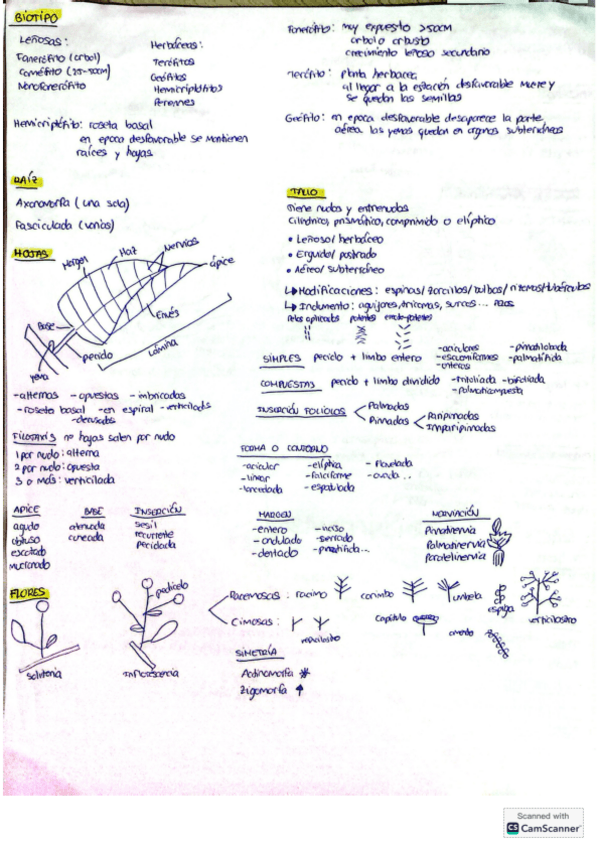 BIOTIPO
Leñosas:
Fanerófito (arbol)
Caméfito (25-50cm)
Nanofanerófito
Herbáceas:
Terófitos
Geófitos
Hemicriptófitos
Perennes
Hemicriptófito: roseta basal
en epoca desfavorable se mantienen
raíces y hojas
Fanerófito: muy expuesto >50cm
arbol o arbusto
crecimiento leñoso secundario
Terófito: planta herbacea
al llegar a la estación desfavorable muere y
se quedan las semillas
Geófito: en epoca desfavorable desaparece la parte
aérea las yemas quedan en organos subterráneos
RAÍZ
Axonomorfa (una sola)
Fasciculada (varias)
TALLO
Tiene nudos y entrenudos
Cilíndrico, prismático, comprimido o elíptico
• Leñoso/ herbáceo
• Erguido/ postrado
• Aéreo/ subterráneo
↳ Modificaciones: espinas/zarcillos/bulbos/rizomas/tubérculos
↳ Indumento: aguijones, tricomas, surcos... pelos
Pelos aplicados patentes
HOJAS
Margen
Haz
Nervios
ápice
Envés
Base
peciolo
Lámina
yema
-alternas -opuestas -imbricadas
-roseta basal -en espiral -verticiladas
-decusadas
FILOTAXIS nº hojas salen por nudo
1 por nudo: alterna
2 por nudo: opuesta
3 o más: verticilada
SIMPLES peciolo + limbo entero
-aciculares
-escuamiformes
-enteras
-pinnatilobada
-palmatífida
COMPUESTAS peciolo + limbo dividido -trifoliada -bifoliada
-palmaticompuesta
INSERCIÓN FOLIOLOS
Palmadas
Pinnadas
Paripinnadas
Imparipinnadas
FORMA O CONTORNO
-acicular -elíptica -flabelada
-linear -falciforme -ovada...
-lanceolada -espatulada
APICE
agudo
obtuso
escotado
mucronado
BASE
atenuada
cuneada
INSERCIÓN
sesil
decurrente
peciolada
MARGEN
-entero -inciso
-ondulado -serrado
-dentado -pinnatífida...
NERVIACIÓN
Pinnatinervia
Palmatinervia
Paralelinervia
FLORES
solitaria
pedicelo
Inflorescencia
Racemosas: racimo corimbo umbela espiga verticilastro
Cimosas: capítulo amento
SIMETRÍA
Actinomorfa
Zigomorfa
Scanned with
CS CamScanner